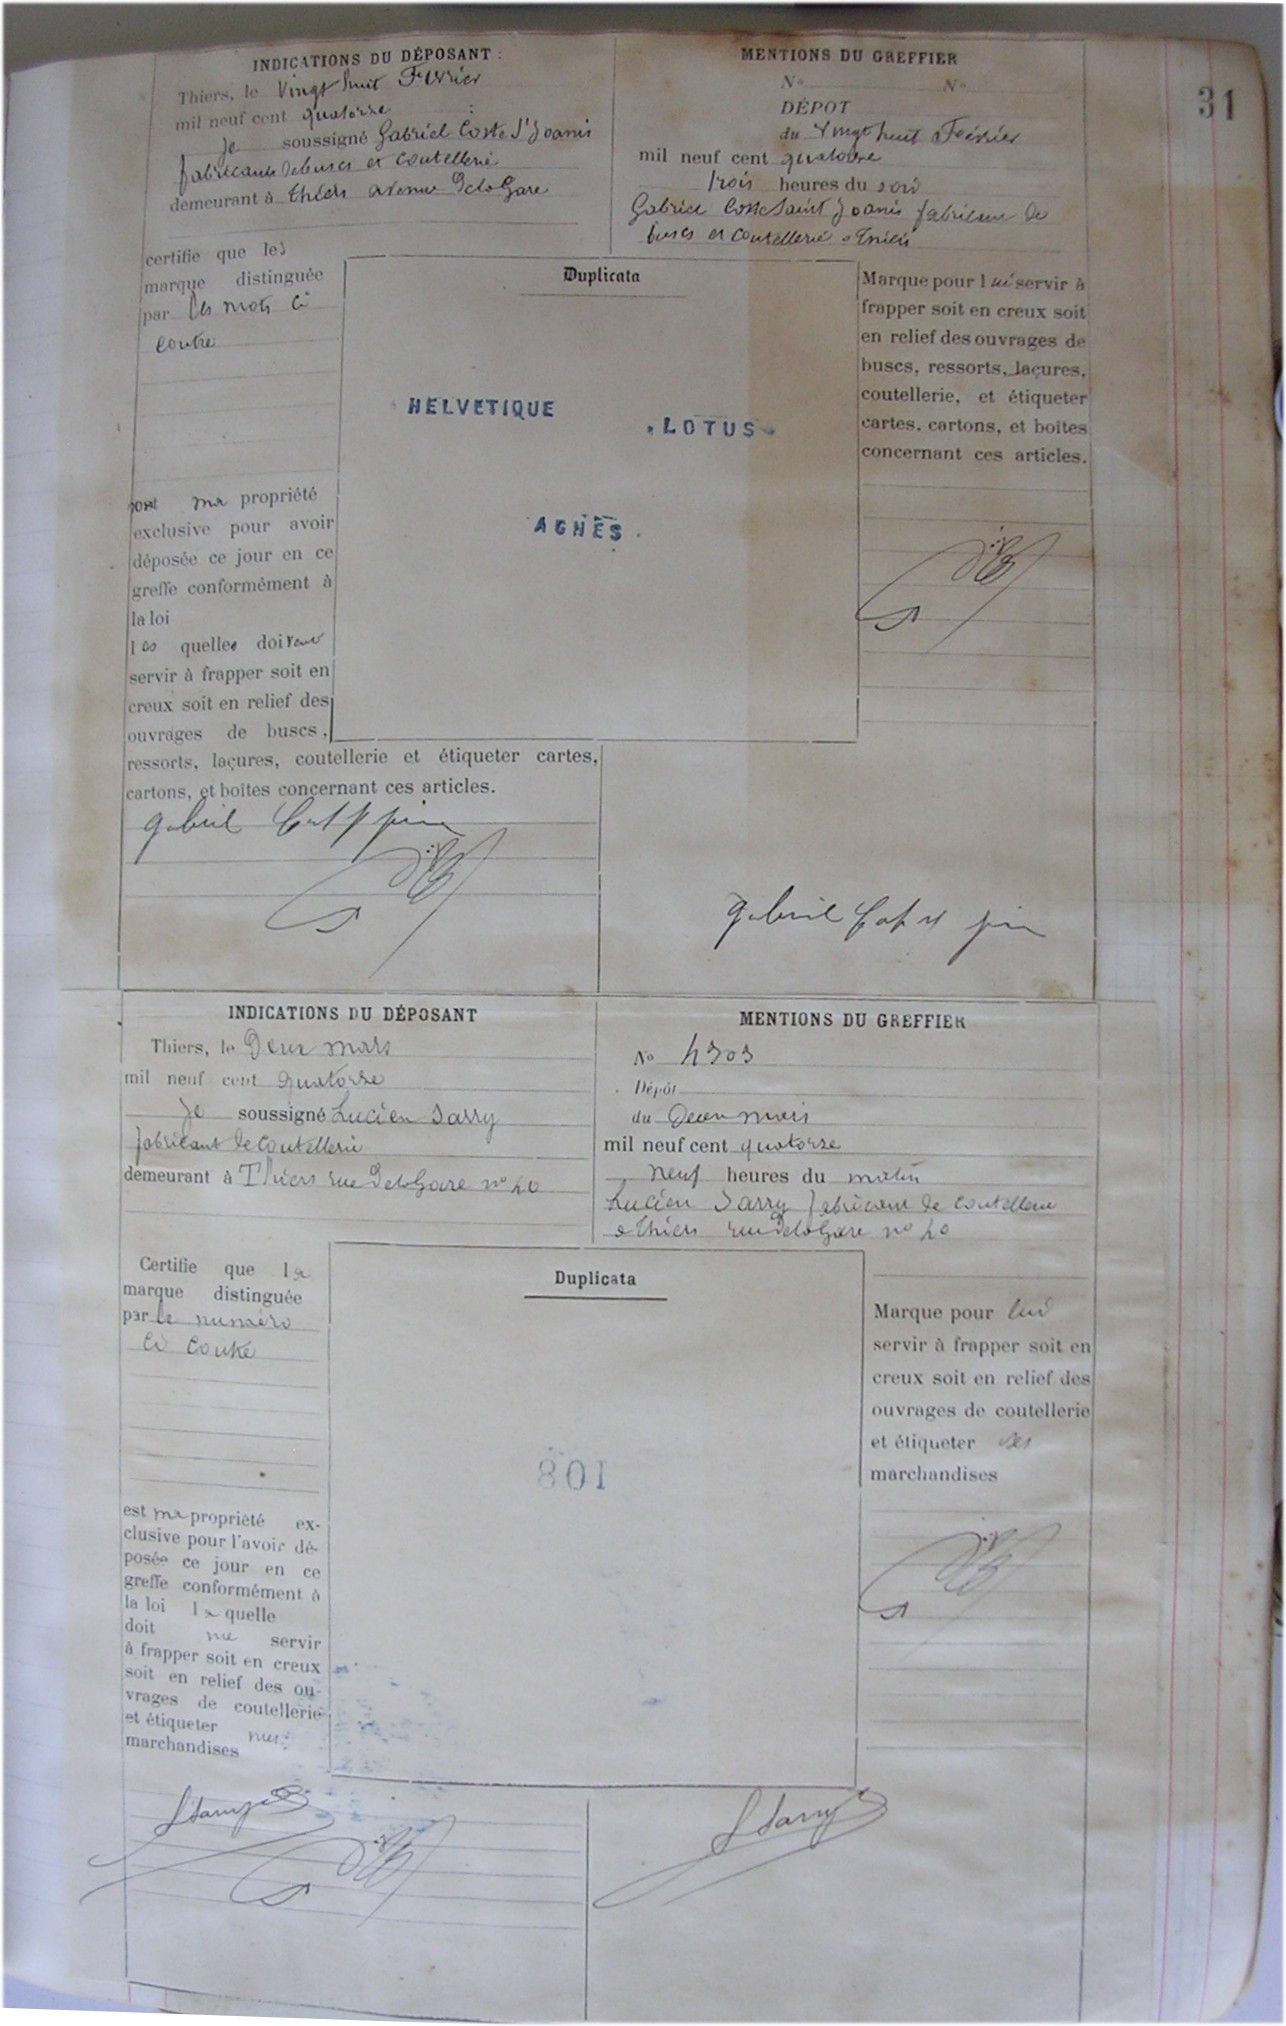 31
INDICATIONS DU DÉPOSANT :
Thiers, le Vingt huit Février
mil neuf cent quatorze
Je soussigné Gabriel Coste St Joanis
fabricant de buscs et coutellerie
demeurant à Thiers avenue de la Gare
certifie que les
marque distinguée
par les mots ci
contre
sont ma propriété
exclusive pour avoir
déposée ce jour en ce
greffe conformément à
la loi
les quelles doivent
servir à frapper soit en
creux soit en relief des
ouvrages de buscs,
ressorts, laçures, coutellerie et étiqueter cartes,
cartons, et boîtes concernant ces articles.
MENTIONS DU GREFFIER
No No
DÉPOT
du Vingt huit Février
mil neuf cent quatorze
trois heures du soir
Gabriel Coste Saint Joanis fabricant de
buscs et coutellerie à Thiers
Duplicata
HELVETIQUE
LOTUS
AGNÈS
Marque pour lui servir à
frapper soit en creux soit
en relief des ouvrages de
buscs, ressorts, laçures,
coutellerie, et étiqueter
cartes, cartons, et boites
concernant ces articles.
INDICATIONS DU DÉPOSANT
Thiers, le Deux mars
mil neuf cent quatorze
Je soussigné Lucien Sarry
fabricant de coutellerie
demeurant à Thiers rue de la Gare no 40
Certifie que la
marque distinguée
par le numéro
ci contre
est ma propriété ex-
clusive pour l'avoir dé-
posée ce jour en ce
greffe conformément à
la loi la quelle
doit me servir
à frapper soit en creux
soit en relief des ou-
vrages de coutellerie
et étiqueter mes
marchandises
MENTIONS DU GREFFIER
No 4303
Dépôt
du Deux mars
mil neuf cent quatorze
neuf heures du matin
Lucien Sarry fabricant de coutellerie
à Thiers rue de la Gare no 40
Duplicata
108
Marque pour lui
servir à frapper soit en
creux soit en relief des
ouvrages de coutellerie
et étiqueter ses
marchandises
LSarry
LSarry